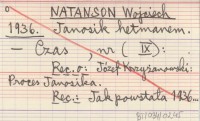 NATANSON Wojciech
1936. Janosik hetmanem.
— Czas, nr ( IX ):
Rec. o: Józef Korzeniowski:
Proces Janosika.
Rec.: Jak powstała 1936...